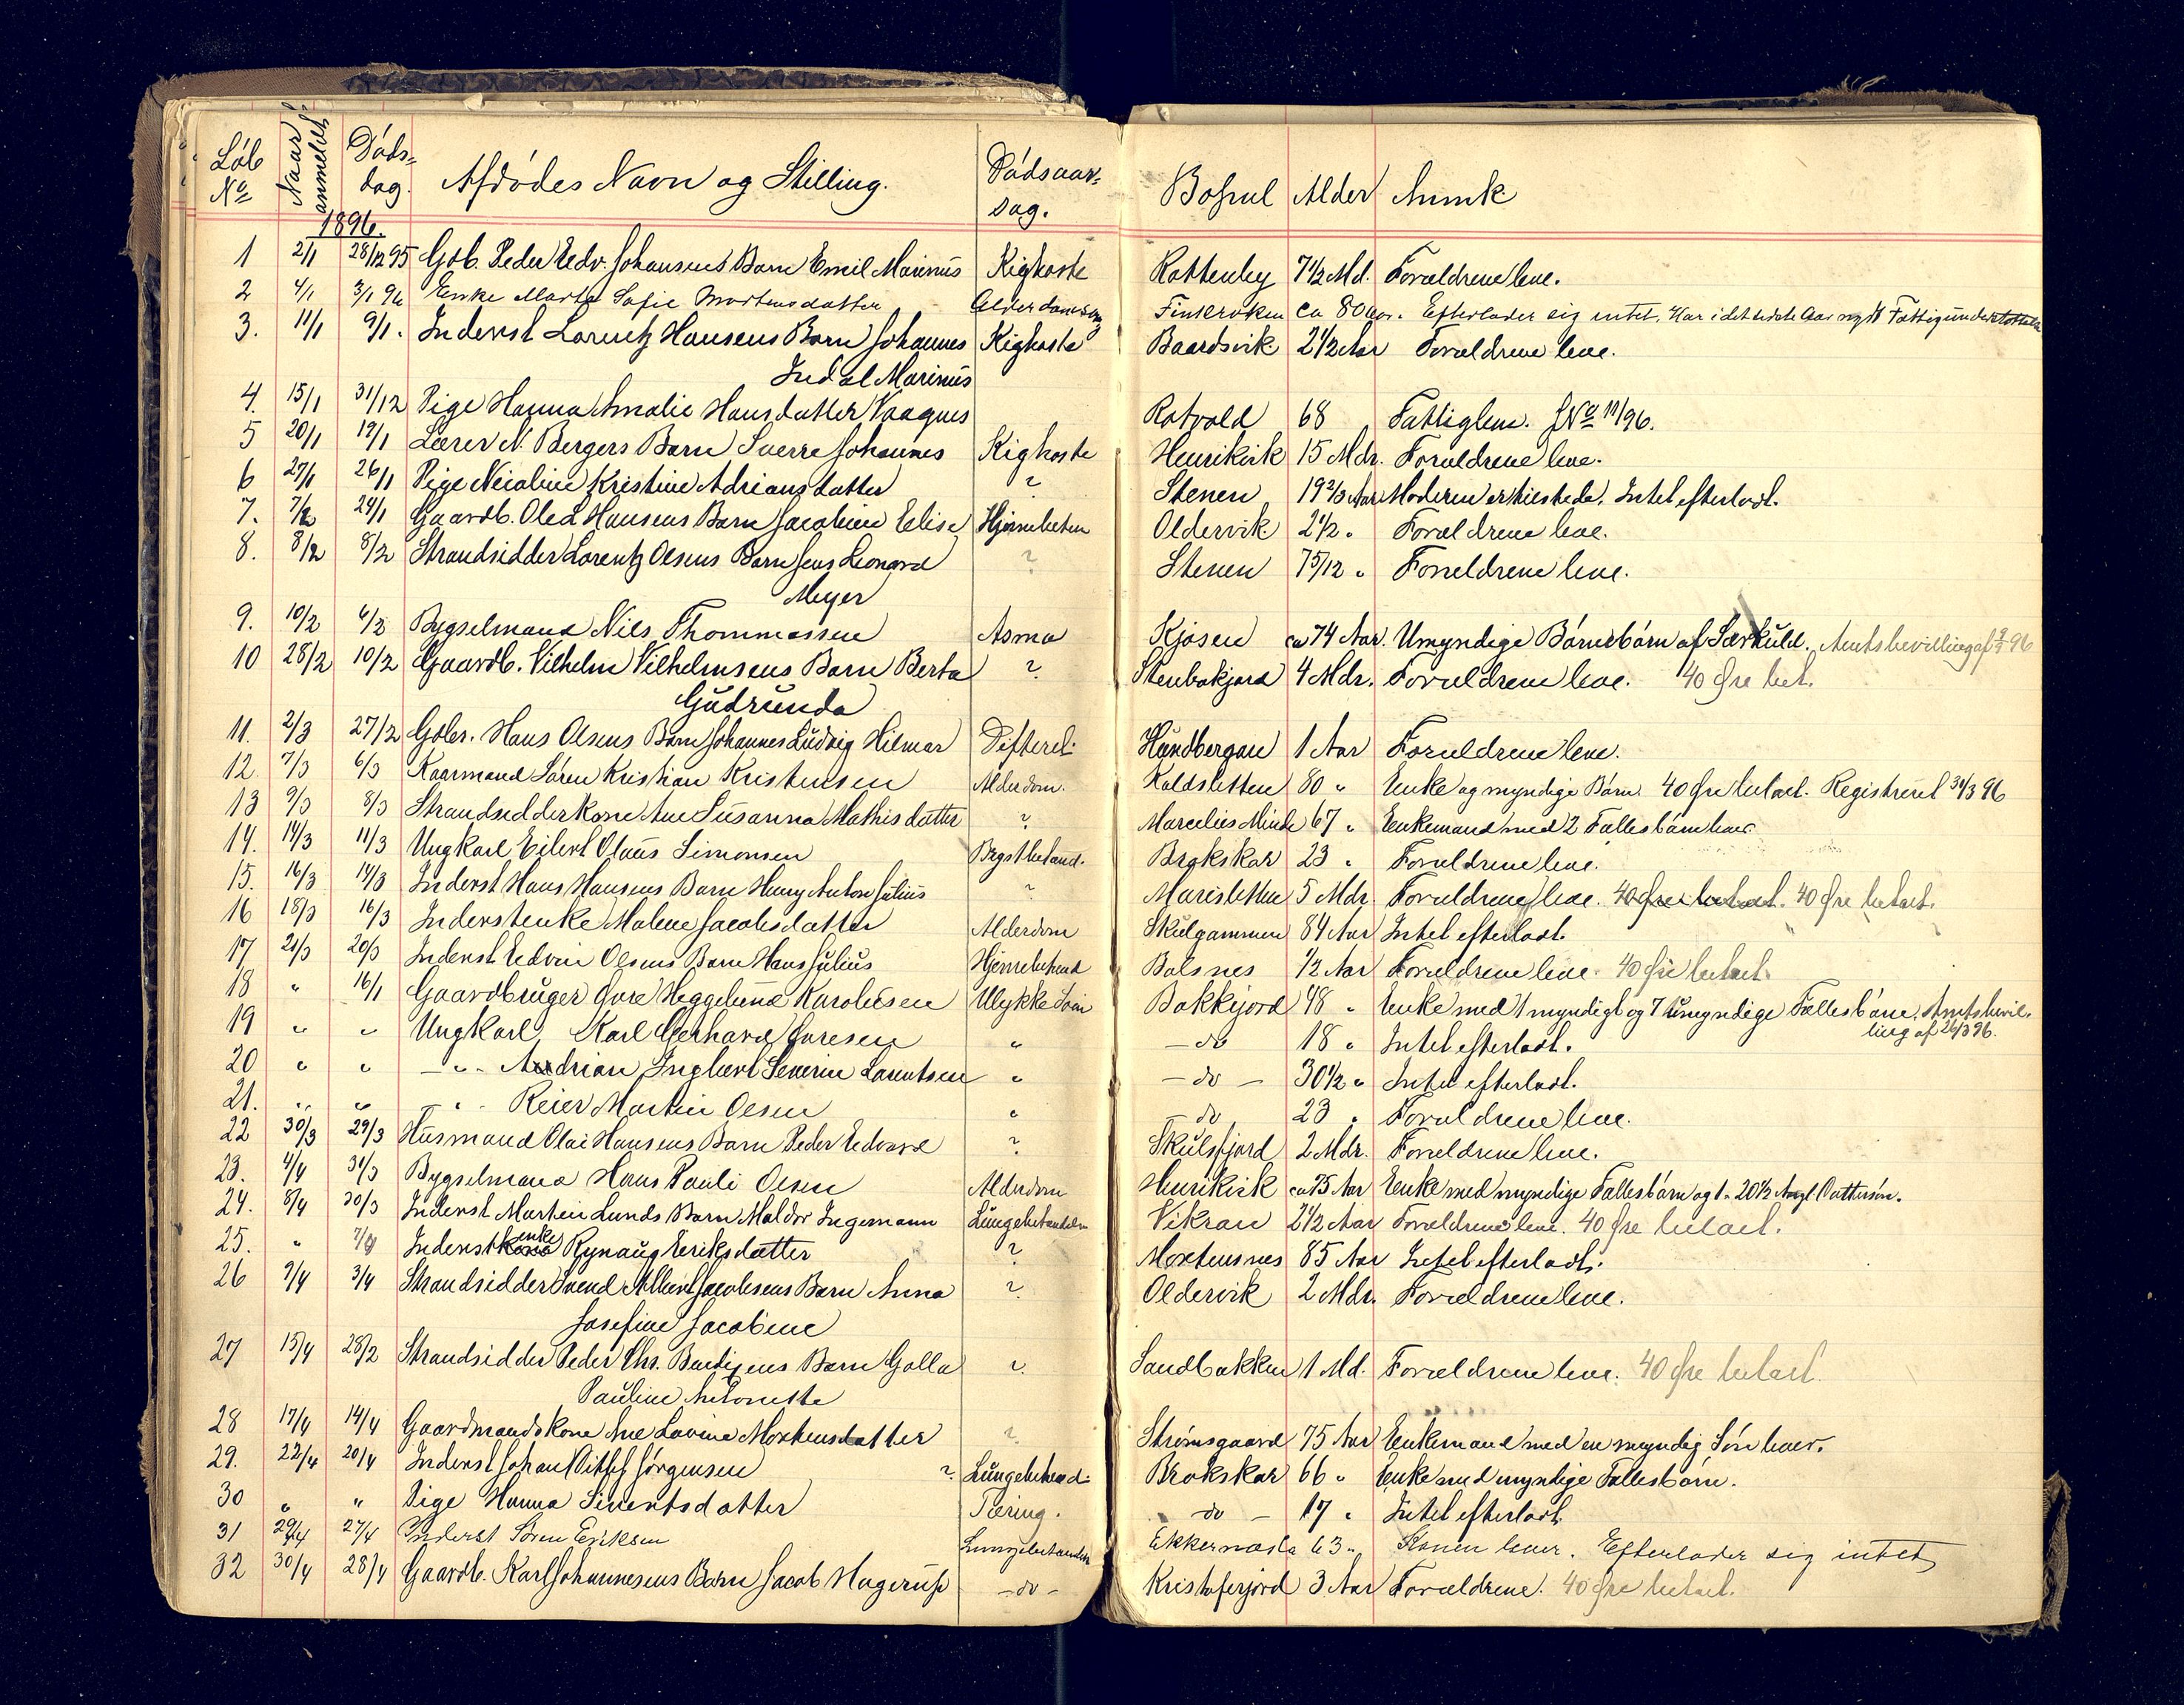 Löb No Naar anmeldet Döds- dag. Afdödes Navn og Stilling. Dödsaar- sag. Bopæl Alder Anmk
1896.
1 2/1 28/12 95 Gdb. Peder Edv. Johansens Barn Emil Marinus Kighoste Kattenby 7 1/2 Md. Forældrene leve.
2 4/1 3/1 96 Enke Marta Sofie Mortensdatter Alderdomssvag Finkroken ca 80 aar. Efterlader sig intet. Har i det sidste Aar nydt Fattigunderstöttelse
3. 11/1 9/1. Inderst Lorentz Hansens Barn Johannes Kighoste Baardsvik 2 1/2 Aar Forældrene leve.
Indal Marinus
4. 15/1 31/12 Pige Hanna Amalie Hansdatter Vaagnes Rotvold 68 Fattiglem. JNo 11/96.
5 20/1 19/1 Lærer N. Bergers Barn Sverre Johannes Kighoste Henrikvik 15 Mdr. Forældrene leve.
6 27/1 26/1 Pige Neialine Kristine Adriansdatter ? Stenen 19 2/3 Aar Moderen er tilstede. Intet efterladt.
7. 7/2 24/1 Gaardb. Ole L Hansens Barn Jacobine Elise Hjernebeten Oldervik 2 1/2 " Forældrene leve.
8. 8/2 8/2 Strandsidder Lorentz Olsens Barn Jens Leonard ? Stenen 7 5/12 " Forældrene leve.
Meyer
9. 10/2 6/2 Bygselmand Nils Thommassen Asma Kjosen ca 74 Aar. Umyndige Börnebörn af Særkuld. Amtsbevilling af 9/3 96
10 28/2 10/2 Gaardb. Vilhelm Vilhelmsens Barn Berta ? Stenbakjord 4 Mdr. Forældrene leve. 40 Øre bet.
Gudrunda
11. 2/3 27/2 Gdbr. Hans Olsens Barn Johannes Ludvig Hilmar Difterit Hundbergan 1 Aar Forældrene leve.
12. 7/3 6/3 Kaarmand Sören Kristian Kristensen Alderdom. Koldsletten 80 " Enke og myndige Börn. 40 Øre betalt. Registreret 30/3 96
13 9/3 8/3 Strandsidderkone Ane Susanna Mathisdatter ? Marcelius Minde 67 " Enkemand med 2 Fællesbörn lever.
14. 14/3 11/3 Ungkarl Eilert Olaus Simonsen Brystbetænd. Brokskar 23 " Forældrene leve.
15. 16/3 14/3 Inderst Hans Hansens Barn Henry Anton Julius ? Marisletten 5 Mdr. Forældrene leve. 40 Øre betalt. 40 Øre betalt.
16 18/3 16/3 Inderstenke Malene Jacobsdatter Alderdom Skulgammen 84 Aar Intet efterladt.
17 21/3 20/3 Inderst Edvin Olsens Barn Hans Julius Hjernebetænd Balsnes 1/2 Aar Forældrene leve. 40 Øre betalt.
18 " 16/1 Gaardbruger Ovre Heggelund Karolussen Ulykke Söin Bakkejord 48 " Enke med 1 myndigt og 7 umyndige Fællesbörn. Amtsbevil-
ling af 26/3 96.
19 " " Ungkarl Karl Gerhard Ovresen " - do 18 " Intet efterladt.
20 " " - " - Andrian Ingbert Severin Larentsen " - do - 30 1/2 " Intet efterladt.
21. " " - " - Reier Martin Olsen " - do 23 " Forældrene leve.
22 30/3 29/3 Husmand Olai Hansens Barn Peder Edvard ? Skulsfjord 2 Mdr. Forældrene leve.
23. 4/4 31/3 Bygselmand Hans Pauli Olsen Alderdom Henrikvik ca 75 Aar Enke med myndige Fællesbörn og 1 - 20 1/2 Aargl. Dattersön.
24. 8/4 30/3 Inderst Martin Lunds Barn Haldor Ingemann Lungebetændelse Vikran 2 1/2 Aar Forældrene leve. 40 Øre betalt.
25. " 7/4 Inderstkone enke Rynaug Eriksdatter ? Mortensnes 85 Aar Intet efterladt.
26 9/4 3/4 Strandsidder Svend Albert Jacobsens Barn Anna ? Oldervik 2 Mdr. Forældrene leve.
Josefine Jacobine
27 15/4 28/2 Strandsidder Peder Chr. Bertigens Barn Golla ? Sandbakken 1 Md. Forældrene leve. 40 Øre betalt.
Pauline Antonette
28 17/4 14/4 Gaardmandskone Ane Lovine Mortensdatter ? Strömsgaard 75 Aar Enkemand med en myndig Sön lever.
29. 22/4 20/4 Inderst Johan Ditlef Jörgensen ? Lungebetænd. Brokskar 66 " Enke med myndige Fællesbörn.
30 " " Pige Hanna Sivertsdatter Tæring. - do - 17 " Intet efterladt.
31 29/4 27/4 Inderst Sören Eriksen Lungebetændelse Ekkernæsla 63 " Konen lever. Efterlader sig intet
32 30/4 28/4 Gaardb. Karl Johannesens Barn Jacob Hagerup - do - Kristoferjord 3 Aar Forældrene. 40 Øre betalt.